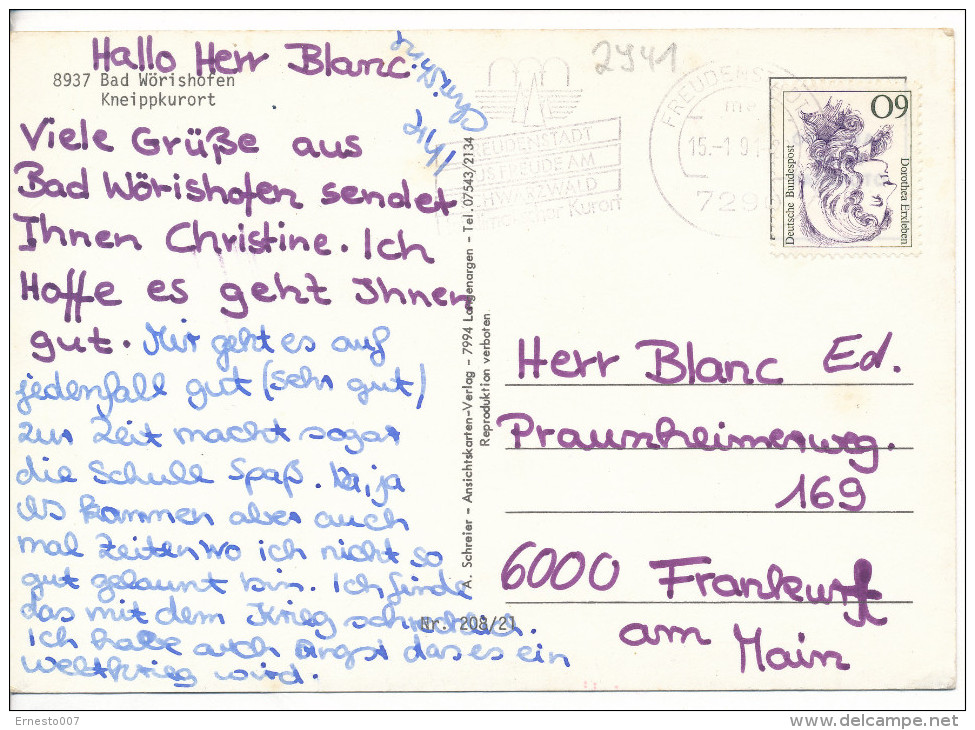 Hallo Herr Blanc.
8937 Bad Wörishofen
Kneippkurort
Viele Grüße aus
Bad Wörishofen sendet
Ihnen Christine. Ich
Hoffe es geht Ihnen
gut. Mir geht es auf
jedenfall gut (sehr gut)
zur Zeit macht sogar
die Schule Spaß. Na, ja
es kommen aber auch
mal Zeiten wo ich nicht so
gut gelaunt bin. Ich finde
das mit dem Krieg schrecklich.
Ich habe auch Angst das es ein
Weltkrieg wird.
Christine
A. Schreier - Ansichtskarten-Verlag - 7994 Langenargen - Tel. 07543/2134
Reproduktion verboten
Nr. 208/21
2941
FREUDENSTADT
FREUDE AM
SCHWARZWALD
Kurort
FREUDENSTADT
15.-1.91
7290
60
Deutsche Bundespost
Dorothea Erxleben
Herr Blanc Ed.
Praunheimerweg.
169
6000 Frankurft
am
Main
Ernesto007
delcampe.net